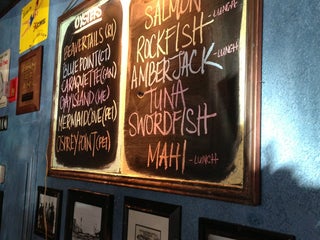 OYSTERS
BEAVERTAILS (RI)
BLUE POINT (CT)
CARAQUETTE (CAN)
MERMAID COVE (PEI)
OSPREY POINT (PEI)
SALMON -LUNCH
ROCKFISH
AMBERJACK -LUNCH
TUNA
SWORDFISH
MAHI -LUNCH